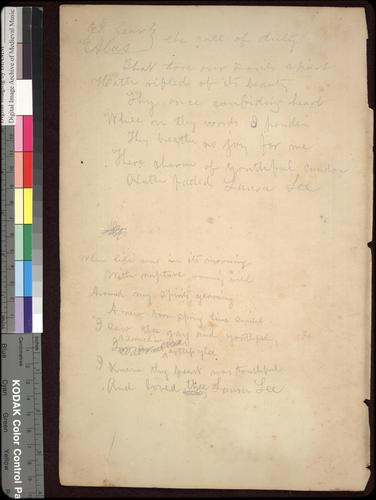 Alas the call of duty
That tore our hearts apart
Hath rifled of its beauty
Thy once confiding heart
While on thy words I ponder
Thy breathe no joy for me
charm of youthful candor
Hath faded Laura Lee
When life was in its morning
With rapture warm, wild
Around my spirits yearning
A new born spring time smiled
I saw thee gay and youthful,
I
I knew thy heart was truthful
And loved thee Laura Lee
Digital Image Archive of Medieval Music
Centimetres
KODAK Color Control Pa
Blue
Cyan
Green
Yellow